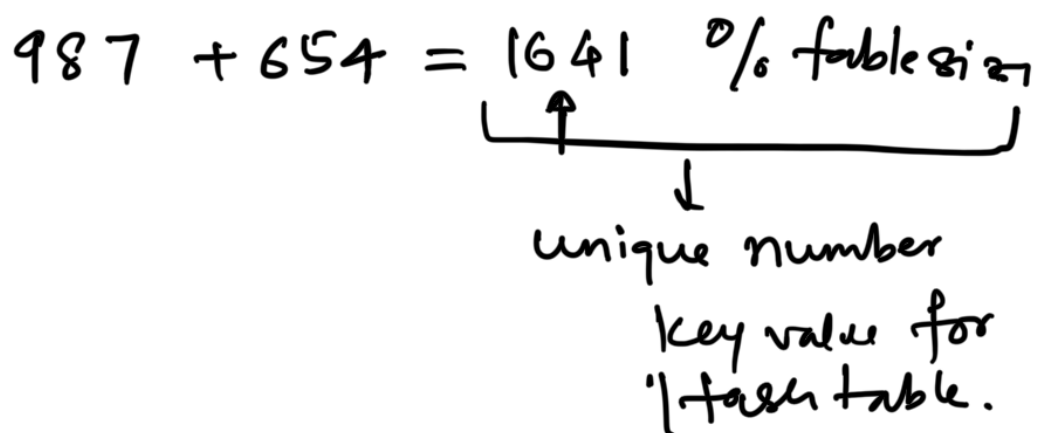 987 + 654 = 1641 % tablesize
unique number
key value for
Hash table.